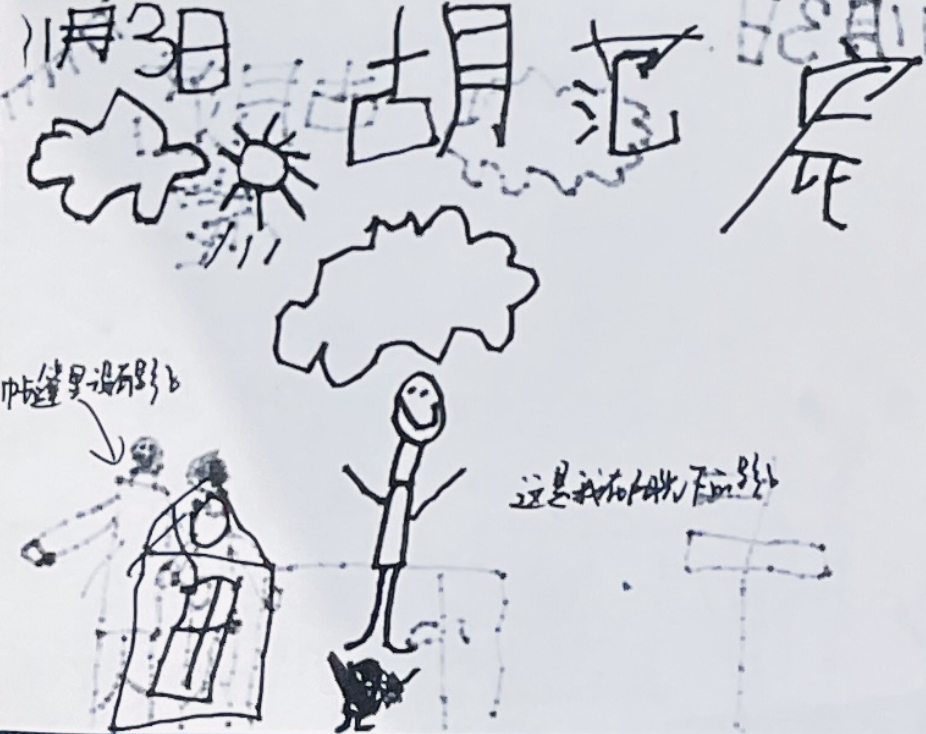 11月3日 胡范辰
帐篷里没有影子
这是我在阳光下的影子